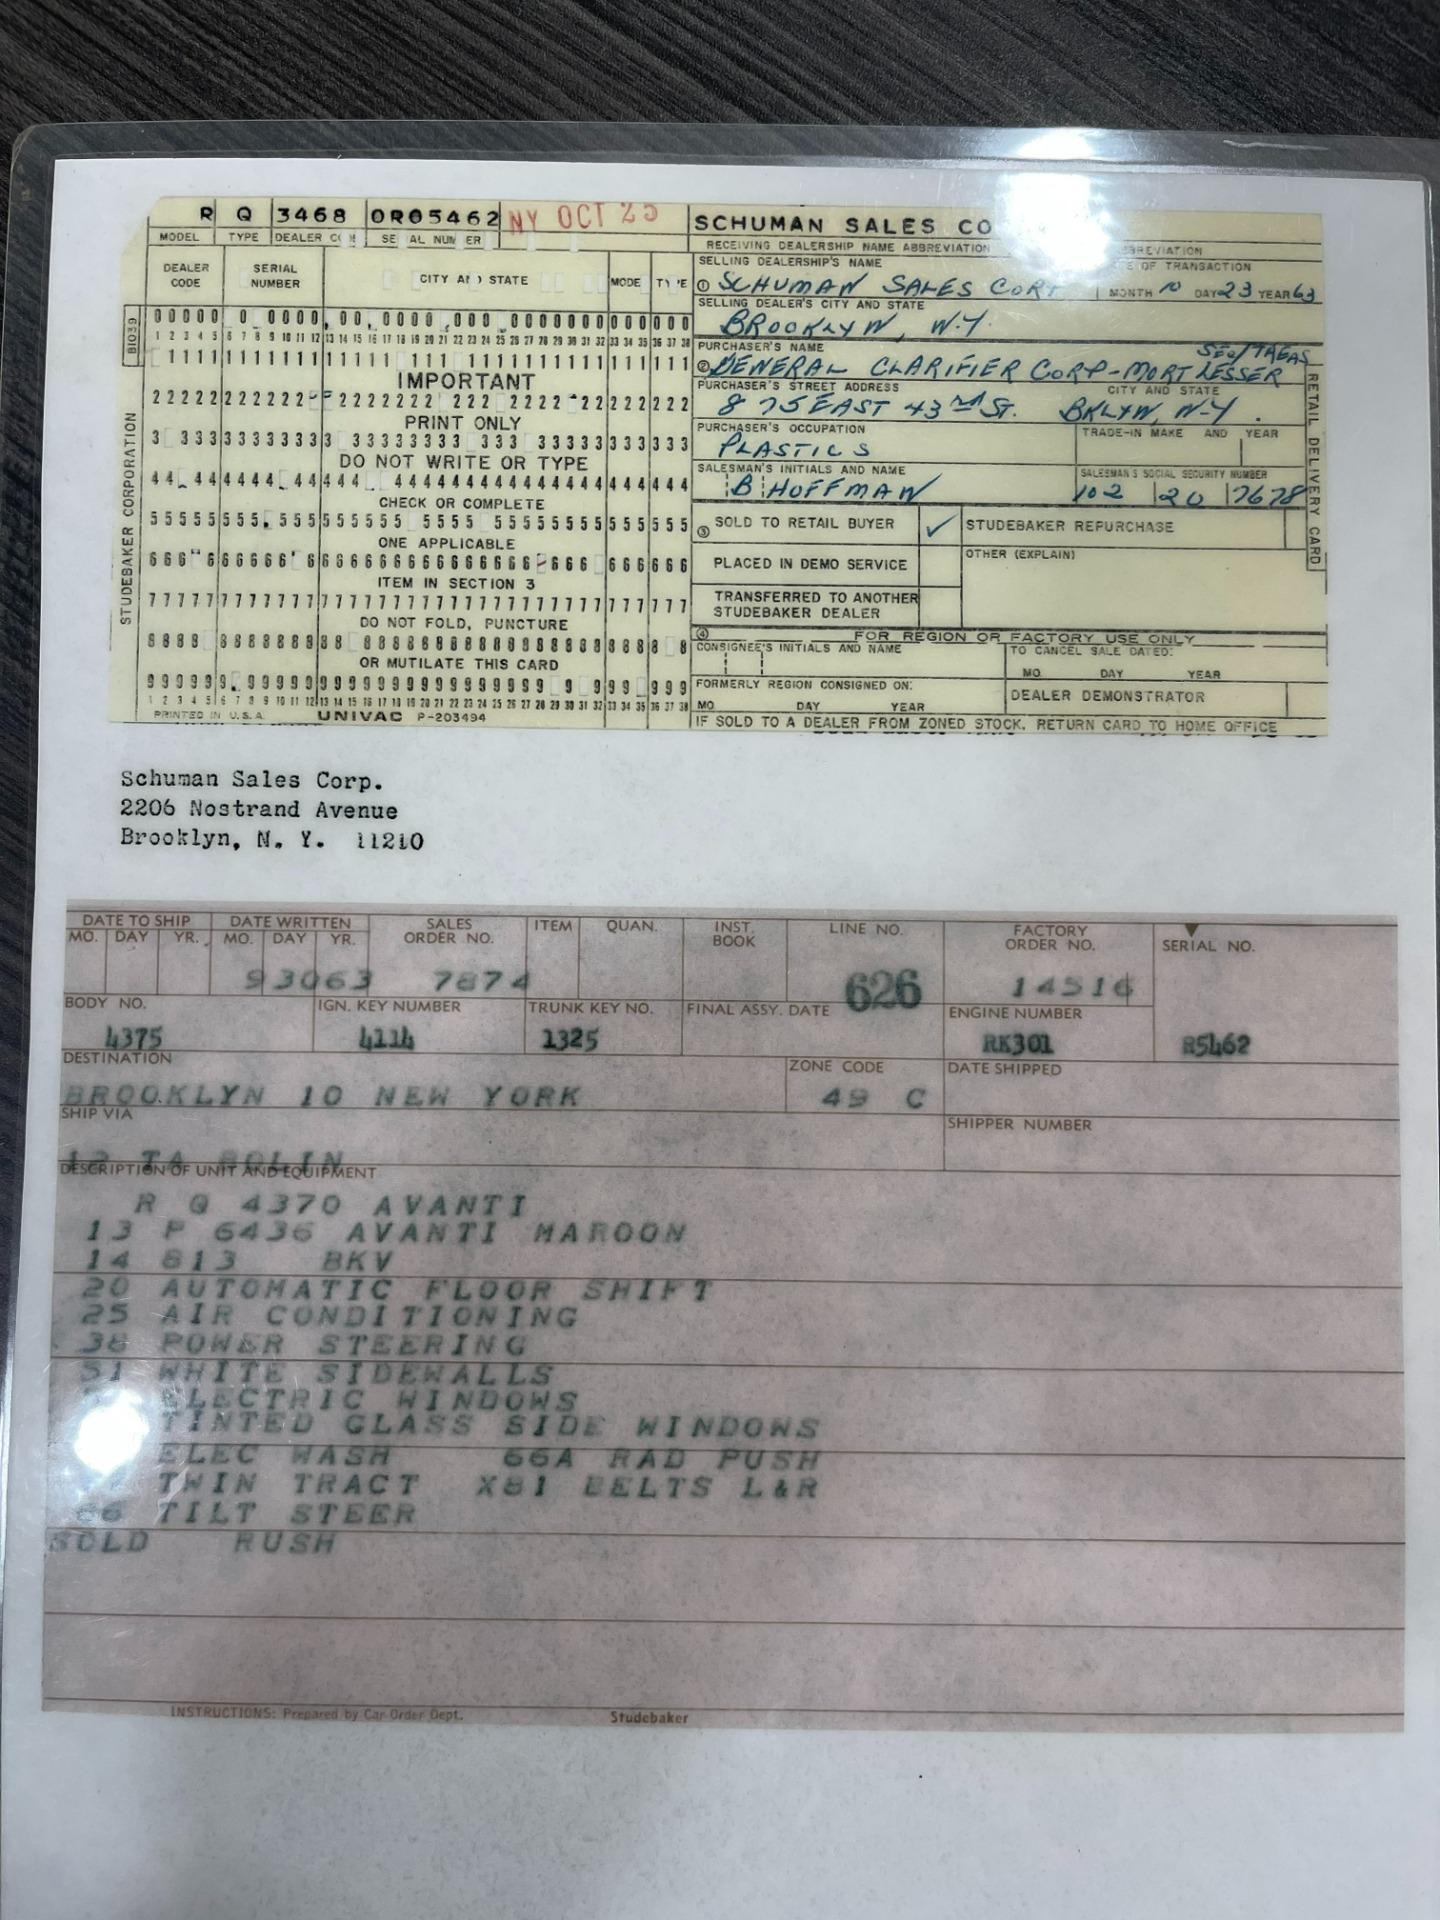 R Q 3468 0R05462 NY OCT 25 SCHUMAN SALES CO
MODEL TYPE DEALER SERIAL NUMBER RECEIVING DEALERSHIP NAME ABBREVIATION
DEALER CODE SERIAL NUMBER CITY AND STATE MODE TYPE
SELLING DEALERSHIP'S NAME OF TRANSACTION
① SCHUMAN SALES CORP MONTH 10 DAY 23 YEAR 63
SELLING DEALER'S CITY AND STATE
BROOKLYN, N.Y.
PURCHASER'S NAME SEC/TREAS
② GENERAL CLARIFIER CORP-MORT LESSER
PURCHASER'S STREET ADDRESS CITY AND STATE
875 EAST 43RD ST. BKLYN, N.Y.
PURCHASER'S OCCUPATION TRADE-IN MAKE AND YEAR
PLASTICS
SALESMAN'S INITIALS AND NAME SALESMAN'S SOCIAL SECURITY NUMBER
B HOFFMAN 102 20 7678
③ SOLD TO RETAIL BUYER ✓ STUDEBAKER REPURCHASE
PLACED IN DEMO SERVICE OTHER (EXPLAIN)
TRANSFERRED TO ANOTHER
STUDEBAKER DEALER
④ FOR REGION OR FACTORY USE ONLY
CONSIGNEE'S INITIALS AND NAME TO CANCEL SALE DATED:
MO. DAY YEAR
FORMERLY REGION CONSIGNED ON: DEALER DEMONSTRATOR
MO. DAY YEAR
IF SOLD TO A DEALER FROM ZONED STOCK, RETURN CARD TO HOME OFFICE
RETAIL DELIVERY CARD
B1039
STUDEBAKER CORPORATION
IMPORTANT
PRINT ONLY
DO NOT WRITE OR TYPE
CHECK OR COMPLETE
ONE APPLICABLE
ITEM IN SECTION 3
DO NOT FOLD, PUNCTURE
OR MUTILATE THIS CARD
PRINTED IN U.S.A. UNIVAC P-203494
Schuman Sales Corp.
2206 Nostrand Avenue
Brooklyn, N. Y. 11210
DATE TO SHIP DATE WRITTEN SALES ORDER NO. ITEM QUAN. INST. BOOK LINE NO. FACTORY ORDER NO. SERIAL NO.
MO. DAY YR. MO. DAY YR.
93063 7874 626 14516
BODY NO. IGN. KEY NUMBER TRUNK KEY NO. FINAL ASSY. DATE ENGINE NUMBER
4375 4114 1325 RK301 R5462
DESTINATION ZONE CODE DATE SHIPPED
BROOKLYN 10 NEW YORK 49 C
SHIP VIA SHIPPER NUMBER
12 TA BOLIN
DESCRIPTION OF UNIT AND EQUIPMENT
R Q 4370 AVANTI
13 P 6436 AVANTI MAROON
14 813 BKV
20 AUTOMATIC FLOOR SHIFT
25 AIR CONDITIONING
36 POWER STEERING
51 WHITE SIDEWALLS
ELECTRIC WINDOWS
TINTED GLASS SIDE WINDOWS
ELEC WASH 66A RAD PUSH
TWIN TRACT X81 BELTS L&R
TILT STEER
SOLD RUSH
INSTRUCTIONS: Prepared by Car Order Dept. Studebaker